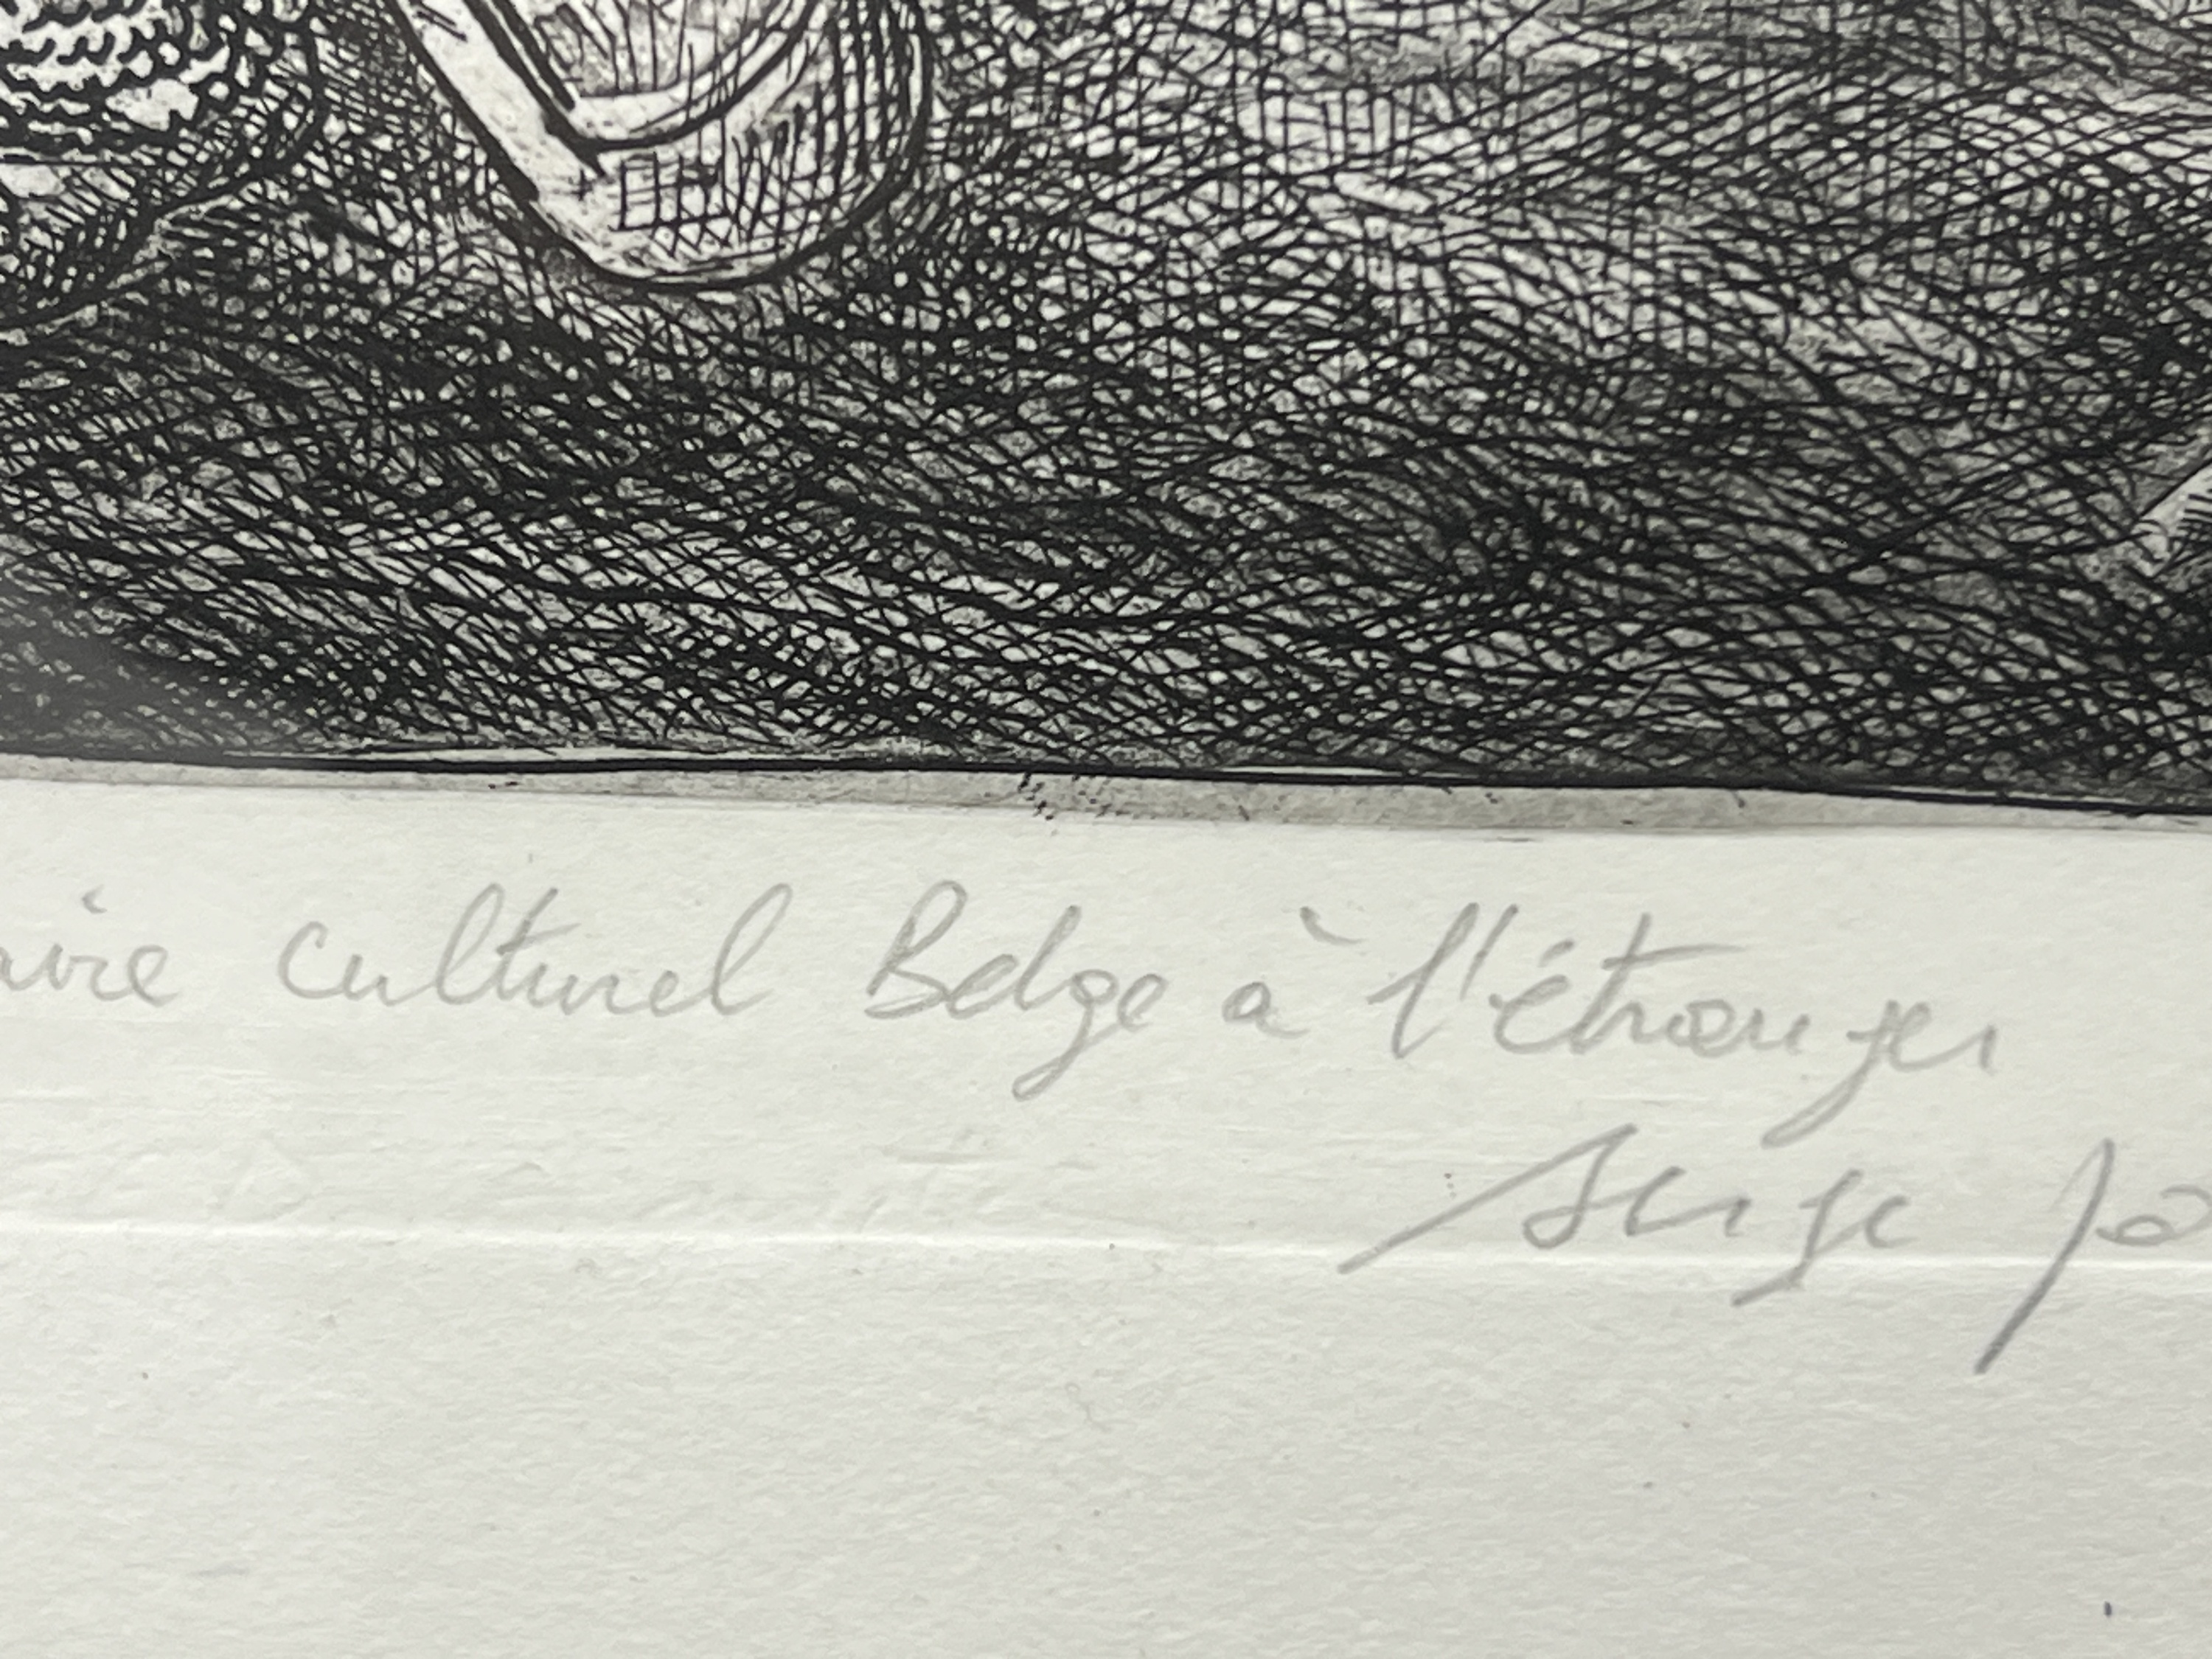 aire Culturel Belge à l'étranger
Serge Pa